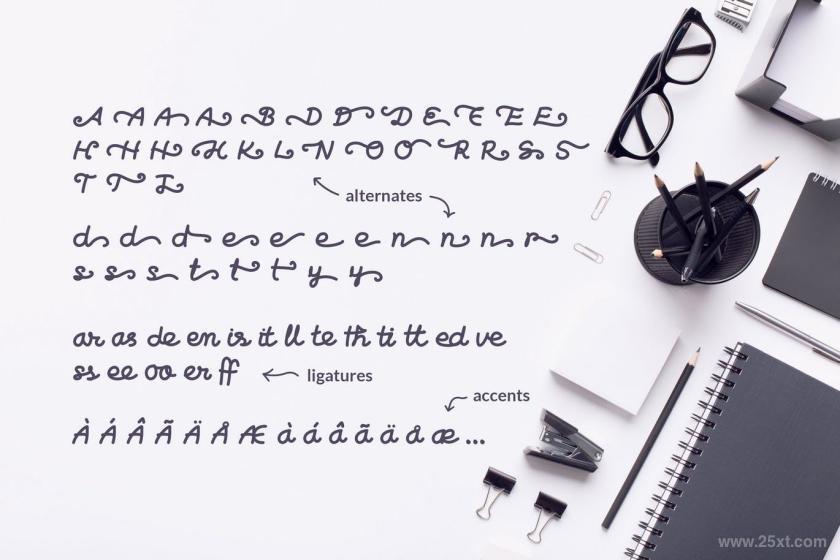 A A A A B D D D E E E E
H H H H K L N O O R R S S
T T I
alternates
d d d e e e e n n n r
s s s t t t y y
ar as de en is it ll te th ti tt ed ve
ss ee oo er ff
ligatures
accents
À Á Â Ã Ä Å Æ à á â ã ä å æ ...
www.25xt.com